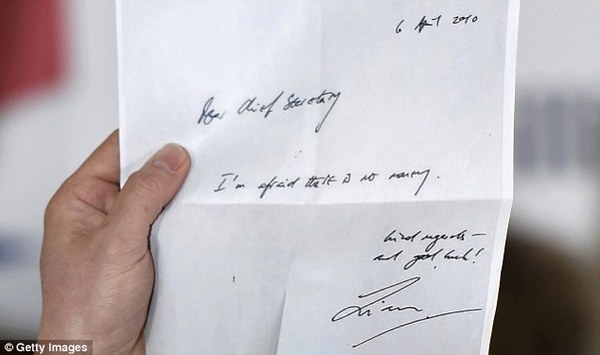 6 April 2010
Dear Chief Secretary
I'm afraid there is no money.
kind regards –
and good luck!
Liam
© Getty Images